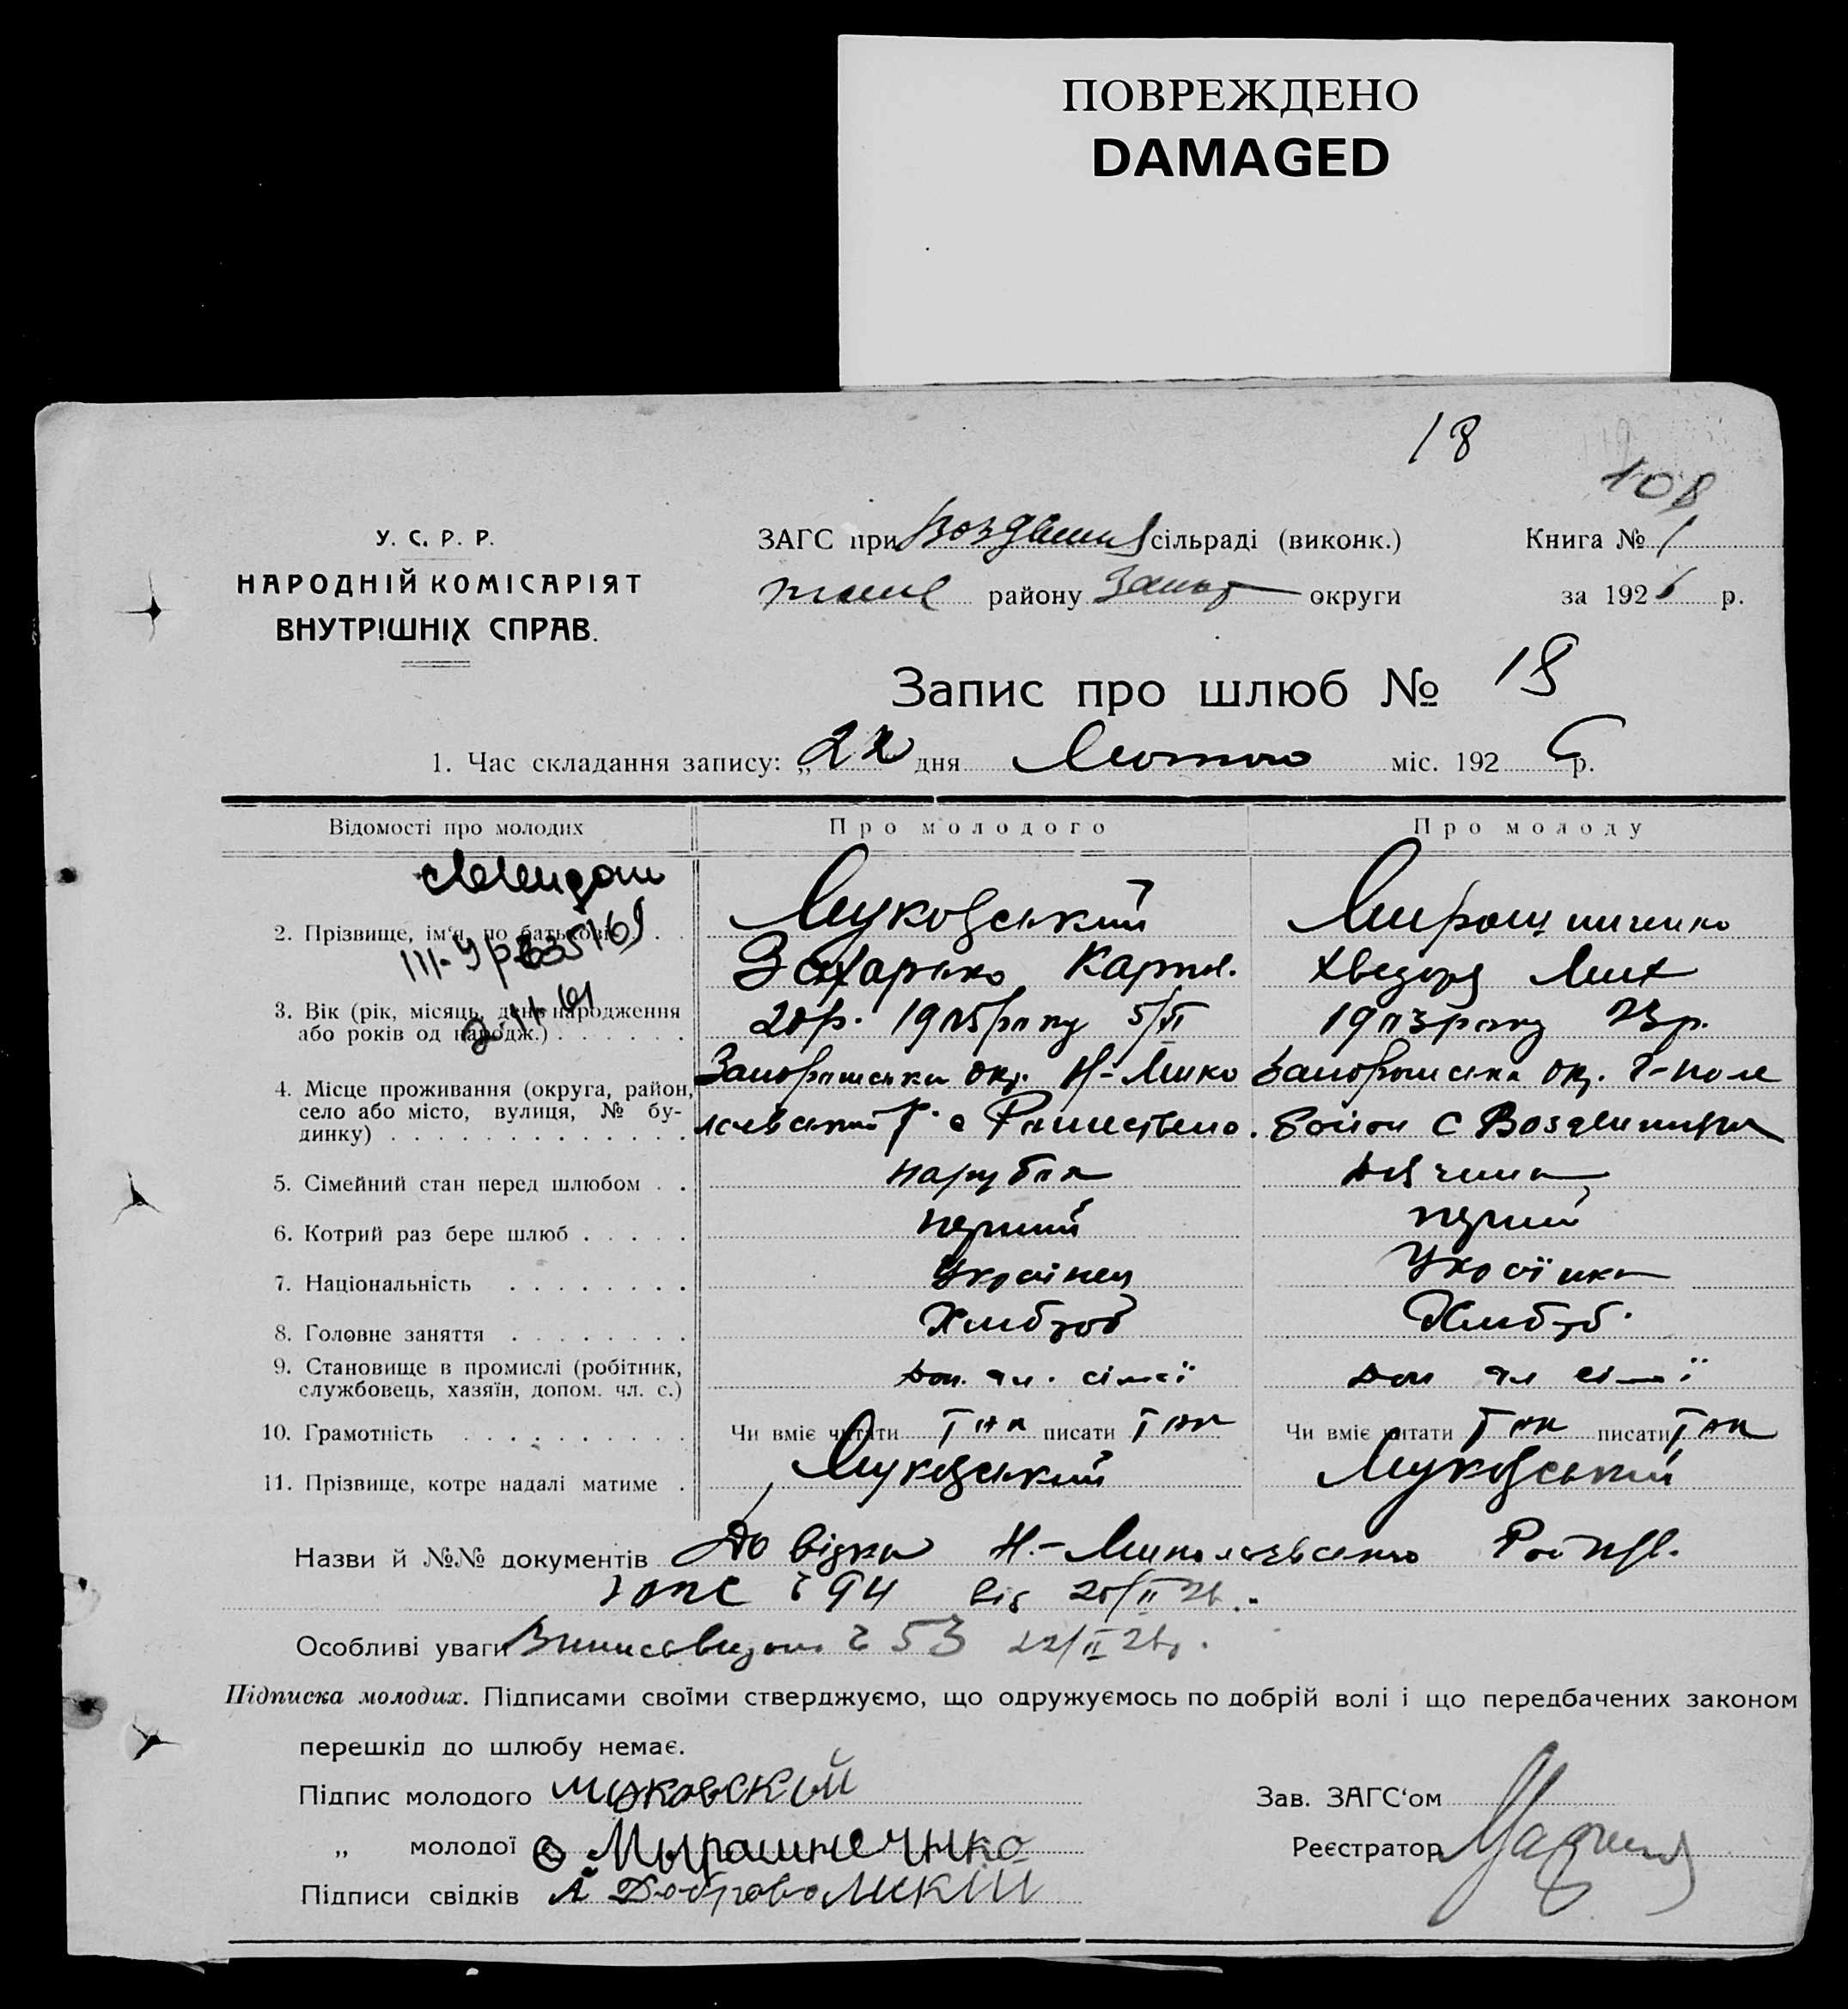 ПОВРЕЖДЕНО
DAMAGED
18
108
У. С. Р. Р.
НАРОДНІЙ КОМІСАРІЯТ
ВНУТРІШНІХ СПРАВ.
ЗАГС при сільраді (виконк.)
Книга № 1
району округи
за 1926 р.
Запис про шлюб № 18
1. Час складання запису: „22 дня Лютого міс. 1926 р.
Відомості про молодих
Про молодого
Про молоду
2. Прізвище, ім'я, по батькові . .
Муковський
Мирошниченко
Захарько Карпов.
Хведора Мих
3. Вік (рік, місяць, день народження
або років од народж.) . . . . . .
20р. 1905 року 5/VI
1903 року 23 р.
4. Місце проживання (округа, район,
село або місто, вулиця, № бу-
динку) . . . . . . . . . . . . .
Запорашська окр. Н-Мико
Запорошська окр. Г-поле
с
район с Воздвижівка
5. Сімейний стан перед шлюбом . .
парубок
дівчина
6. Котрий раз бере шлюб . . . . .
перший
перший
7. Національність . . . . . . . .
Українець
Українка
8. Головне заняття . . . . . . . .
Хлибороб
Хлибороб.
9. Становище в промислі (робітник,
службовець, хазяїн, допом. чл. с.)
Доп. чл. сімєї
Доп чл сімєї
10. Грамотність . . . . . . . . . .
Чи вміє читати Так писати Так
Чи вміє читати Так писати Так
11. Прізвище, котре надалі матиме .
Муковський
Муковський
Назви й №№ документів Довідка Н.-Миколаєвського
ЗАГС № 94 від 20/II 26.
Особливі уваги № 53 22/II 26р.
Підписка молодих. Підписами своїми стверджуємо, що одружуємось по добрій волі і що передбачених законом
перешкід до шлюбу немає.
Підпис молодого Муковский
Зав. ЗАГС'ом
„ молодої Ѳ Мырашнечнко
Реєстратор
Підписи свідків А Добровольский